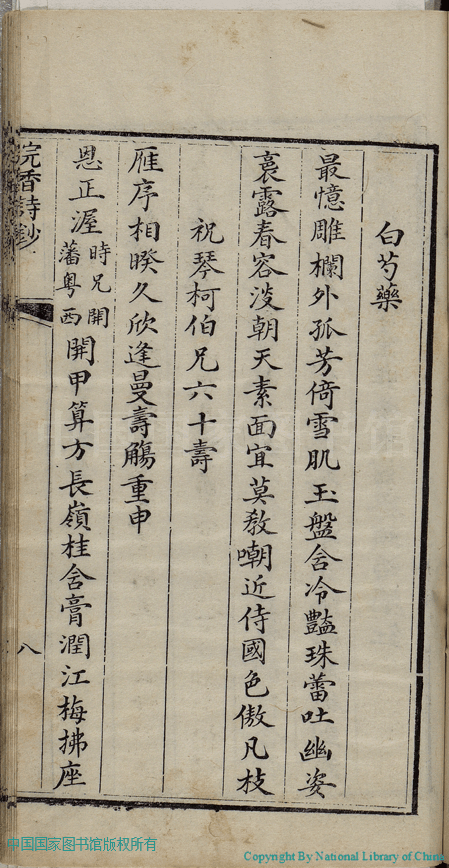 白芍藥
最憶雕欄外孤芳倚雪肌玉盤含冷豔珠蕾吐幽姿
裛露春容淡朝天素面宜莫教嘲近侍國色傲凡枝
祝琴柯伯兄六十壽
雁序相暌久欣逢曼壽觴重申
恩正渥時兄開藩粵西開甲算方長嶺桂含膏潤江梅拂座
浣香詩鈔
八
中国国家图书馆版权所有
Copyright By National Library of China